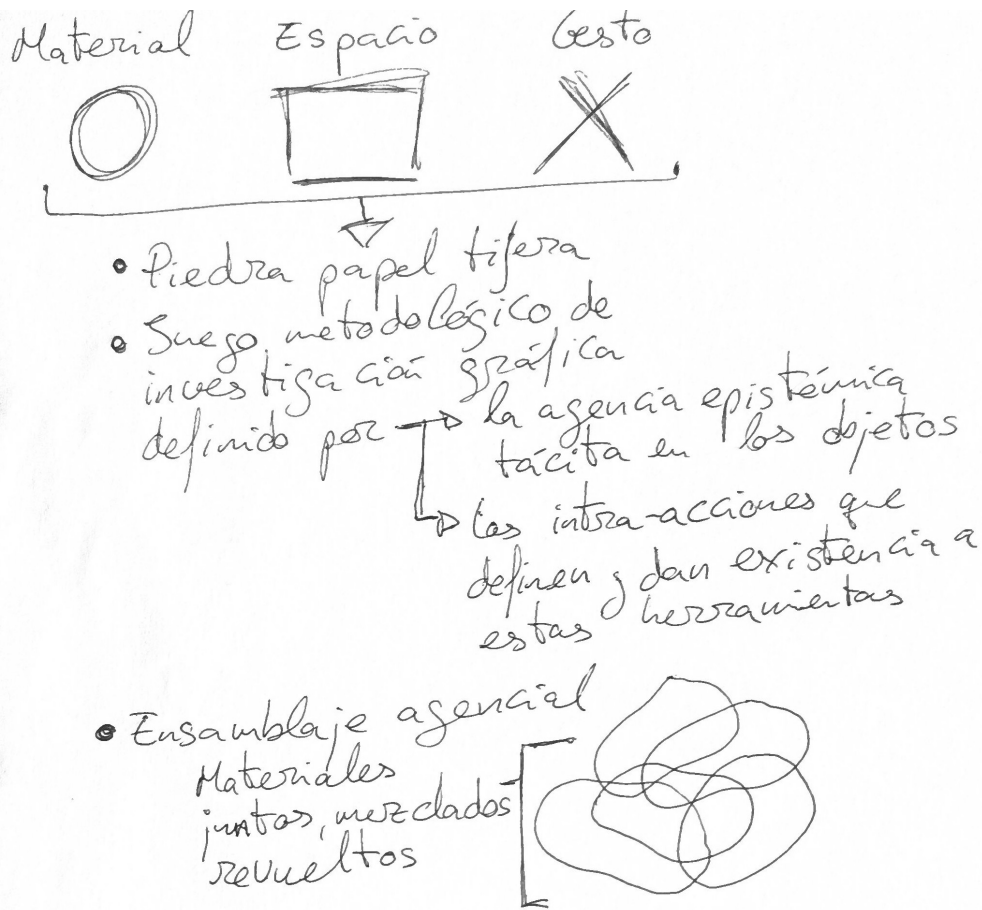 Material Espacio Gesto
• Piedra papel tijera
• Juego metodológico de
investigación gráfica
definido por
la agencia epistémica
tácita en los objetos
las intra-acciones que
definen y dan existencia a
estas herramientas
• Ensamblaje agencial
Materiales
juntos, mezclados
revueltos